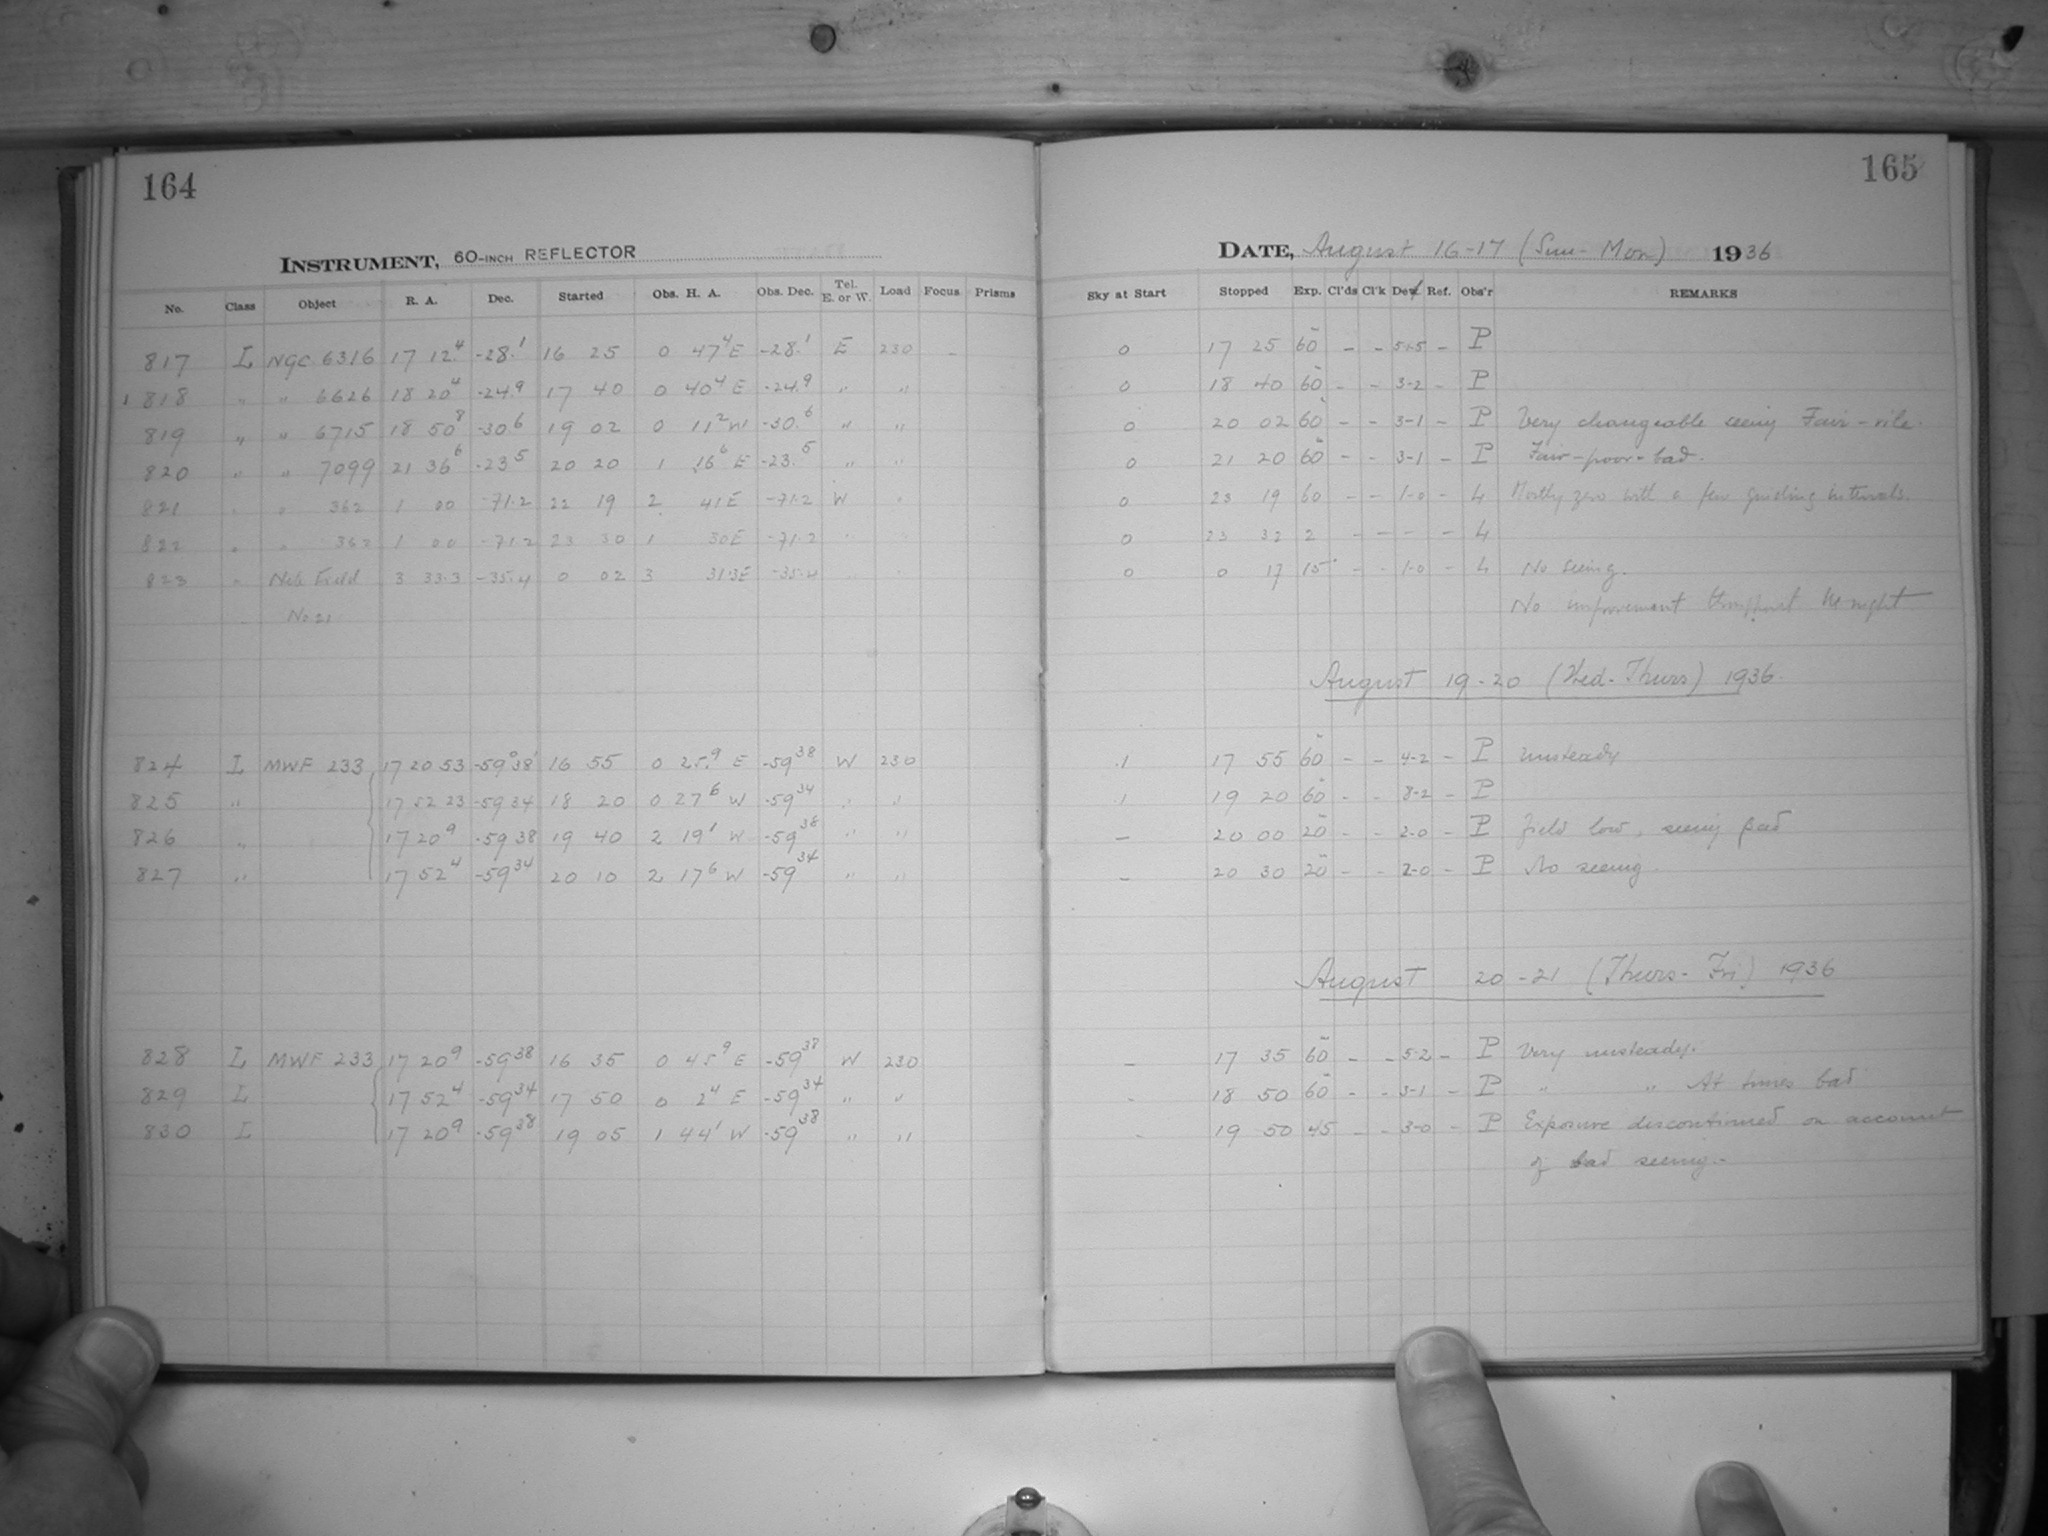 164
INSTRUMENT, 60-INCH REFLECTOR
No. Class Object R. A. Dec. Started Obs. H. A. Obs. Dec. Tel. E. or W. Load Focus Prisms
817 L NGC 6316 17 12.4 -28.1 16 25 0 47.4 E -28.1 E 230 -
818 " " 6626 18 20.4 -24.9 17 40 0 40.4 E -24.9 " "
819 " " 6715 18 50.8 -30.6 19 02 0 11.2 W -30.6 " "
820 " " 7099 21 36.6 -23.5 20 20 1 16.6 E -23.5 " "
821 " " 362 1 00 -71.2 22 19 2 41 E -71.2 W "
822 " " 362 1 00 -71.2 23 30 1 30 E -71.2 " "
823 " Neb. Field 3 33.3 -35.4 0 02 3 31.3 E -35.4 " "
No 21
824 L MWF 233 17 20 53 -59° 38' 16 55 0 25.9 E -59 38 W 230
825 " 17 52 23 -59 34 18 20 0 27.6 W -59 34 " "
826 " 17 20.9 -59 38 19 40 2 19.1 W -59 38 " "
827 " 17 52.4 -59 34 20 10 2 17.6 W -59 34 " "
828 L MWF 233 17 20.9 -59 38 16 35 0 45.9 E -59 38 W 230
829 L 17 52.4 -59 34 17 50 0 2.4 E -59 34 " "
830 L 17 20.9 -59 38 19 05 1 44.1 W -59 38 " "
165
DATE, August 16-17 (Sun-Mon) 1936
Sky at Start Stopped Exp. Cl'ds Cl'k Dew Ref. Obs'r REMARKS
0 17 25 60 - - 5-5 - P
0 18 40 60 - - 3-2 - P
0 20 02 60 - - 3-1 - P Very changeable seeing Fair - vile.
0 21 20 60 - - 3-1 - P Fair-poor-bad.
0 23 19 60 - - 1-0 - L Mostly zero with a few guiding intervals.
0 23 32 2 - - - - L
0 0 17 15 - - 1-0 - L No seeing.
No improvement throughout the night
August 19-20 (Wed-Thurs) 1936.
1 17 55 60 - - 4-2 - P Unsteady
1 19 20 60 - - 3-2 - P
- 20 00 20 - - 2-0 - P Field low, seeing bad
- 20 30 20 - - 2-0 - P No seeing.
August 20-21 (Thurs-Fri) 1936
- 17 35 60 - - 5-2 - P Very unsteady.
- 18 50 60 - - 3-1 - P " " At times bad
- 19 50 45 - - 3-0 - P Exposure discontinued on account
of bad seeing.